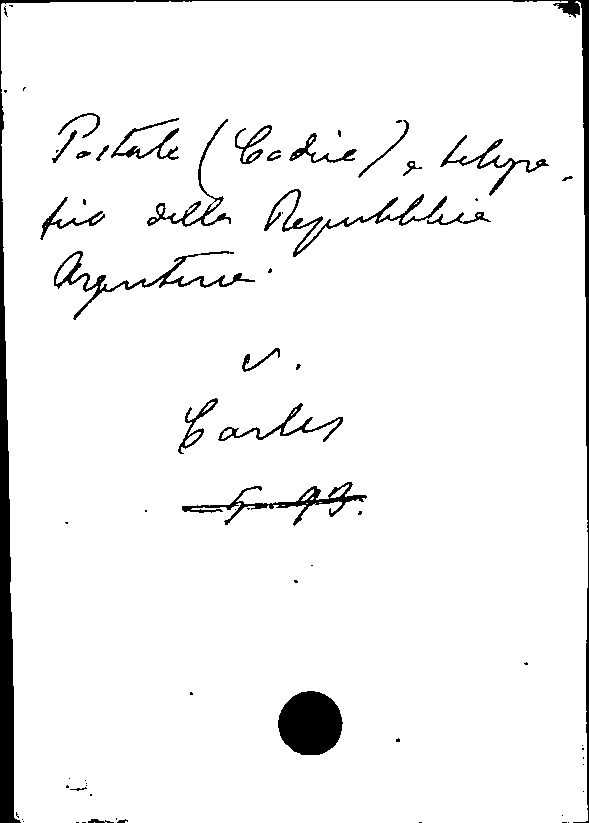 Postale (Codice) e telegra-
fico della Repubblica
Argentina.
v.
Carles
5 93.